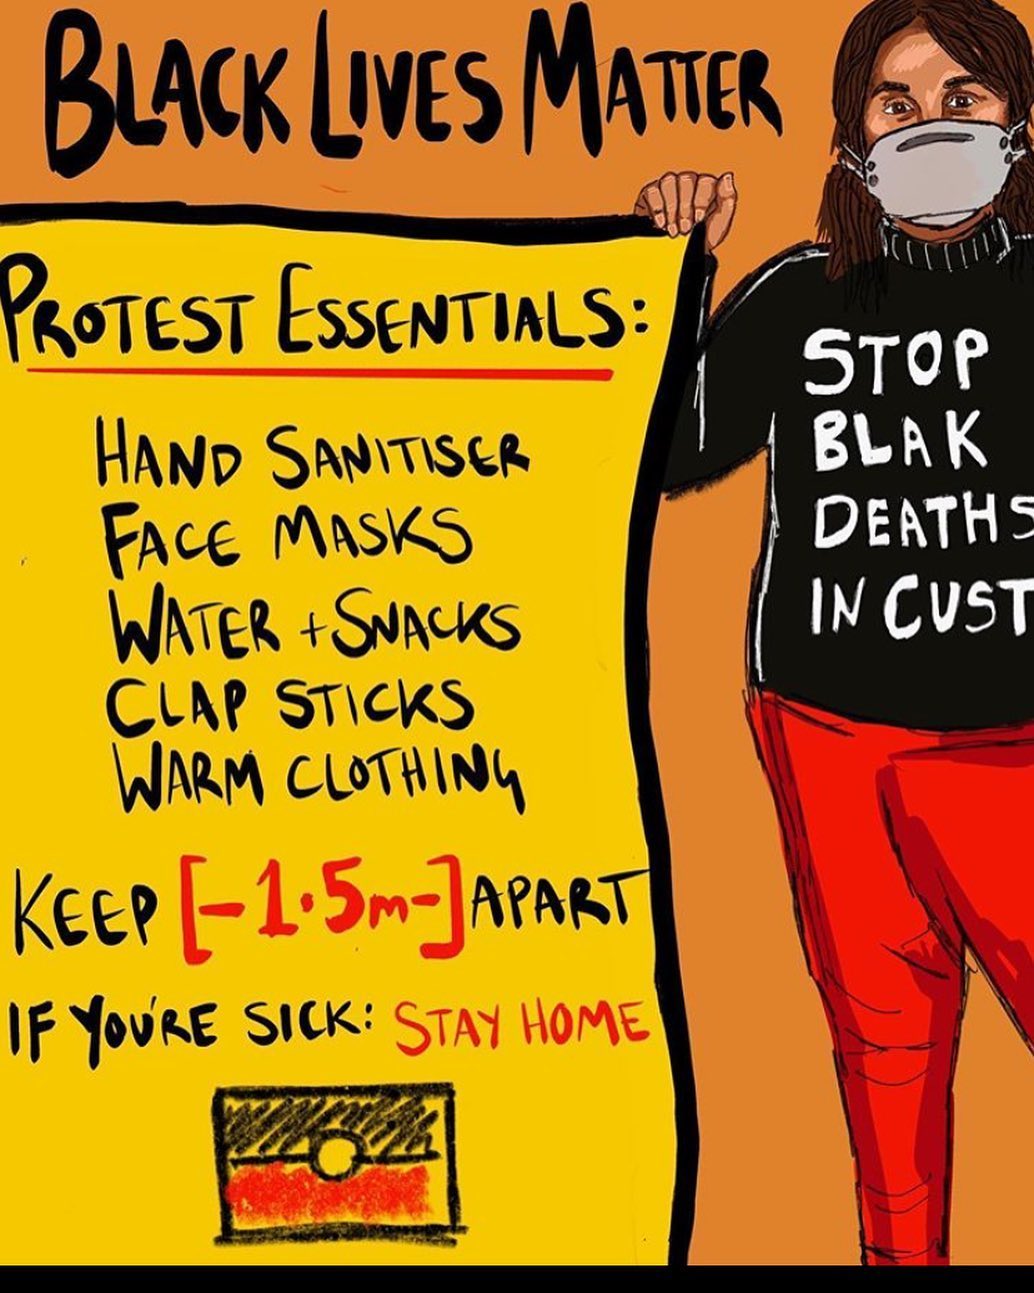 BLACK LIVES MATTER
PROTEST ESSENTIALS:
HAND SANITISER
FACE MASKS
WATER + SNACKS
CLAP STICKS
WARM CLOTHING
KEEP [-1.5m-] APART
IF YOU'RE SICK: STAY HOME
STOP
BLAK
DEATHS
IN CUST